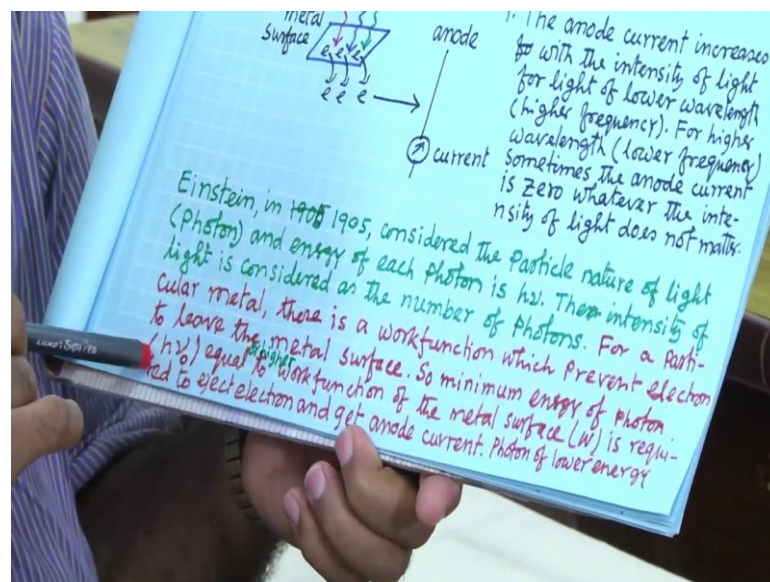 metal
surface
e e e
e e e
anode
current
1. The anode current increases
with the intensity of light
for light of lower wavelength
(higher frequency). For higher
wavelength (lower frequency)
sometimes the anode current
is zero whatever the inte-
nsity of light does not matter.
Einstein, in 1905, considered the Particle nature of light
(Photon) and energy of each photon is hν. The intensity of
light is considered as the number of photons. For a Parti-
cular metal, there is a workfunction which prevent electron
to leave the metal surface. So minimum energy of photon
(hν₀) equal to or higher workfunction of the metal surface (W) is requi-
red to eject electron and get anode current. Photon of lower energy